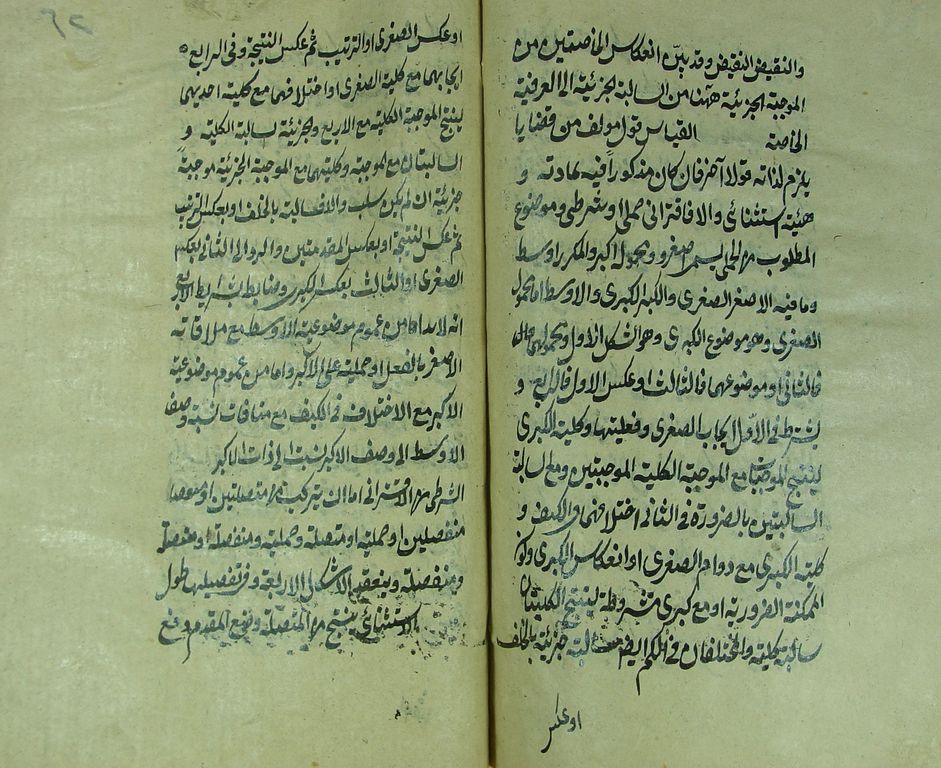 والنقيض النقيض وقد بيّن انعكاس الخاصتين من
الموجبة الجزئية ههنا من السالبة الجزئية الى العرفية
الخاصة القياس قول مولف من قضايا
يلزم لذاته قولا آخر فان كان مذكورا فيه بمادته و
هيئته استثنائي والا فاقتراني حملي او شرطي وموضوع
المطلوب من الحملي يسمى اصغر ومحموله اكبر والمكرر اوسط
وما فيه الاصغر الصغرى والاكبر الكبرى والاوسط اما محمول
الصغرى وهو موضوع الكبرى وهو الشكل الاول ومحمولهما
فالثاني او موضوعهما فالثالث او عكس الاول فالرابع و
يشترط في الاول ايجاب الصغرى وفعليتها وكلية الكبرى
لينتج الموجبتان مع الموجبة الكلية الموجبتين ومع السالبة
السالبتين بالضرورة في الثاني اختلافهما في الكيف و
كلية الكبرى مع دوام الصغرى او انعكاس الكبرى وكون
الممكنة الضرورية او مع كبرى مشروطة لينتج الكليتان
سالبة كلية والمختلفان في الكم ايضا سالبة جزئية بالخلف
او عكس
او عكس الصغرى او الترتيب ثم عكس النتيجة وفي الرابع
ايجابهما مع كلية الصغرى او اختلافهما مع كلية احديهما
لينتج الموجبة الكلية مع الاربع والجزئية سالبة الكلية و
السالبتان مع الموجبة وكليتهما مع الموجبة الجزئية موجبة
جزئية ان لم يكن سلب والا فسالبة بالخلف او بعكس الترتيب
ثم عكس النتيجة او بعكس المقدمتين والرد الى الثاني بعكس
الصغرى او الثالث بعكس الكبرى وضابطة شرايط الاربع
انه لابد اما من عموم موضوعية الاوسط مع ملاقاته
الاصغر بالفعل او حملية على الاكبر واما من عموم موضوعية
الاكبر مع الاختلاف في الكيف مع منافات نسبة وصف
الاوسط الى وصف الاكبر نسبت الى ذات الاكبر
الشرطي من الاقتراني اما ان يتركب من متصلتين او
منفصلين او حملية او متصلة وحملية ومنفصلة او متصلة
ومنفصلة وينعقد الاشكال الاربعة وفي تفصيلها طول
الاستثنائي ينتج من المتصلة وضع المقدم ورفع